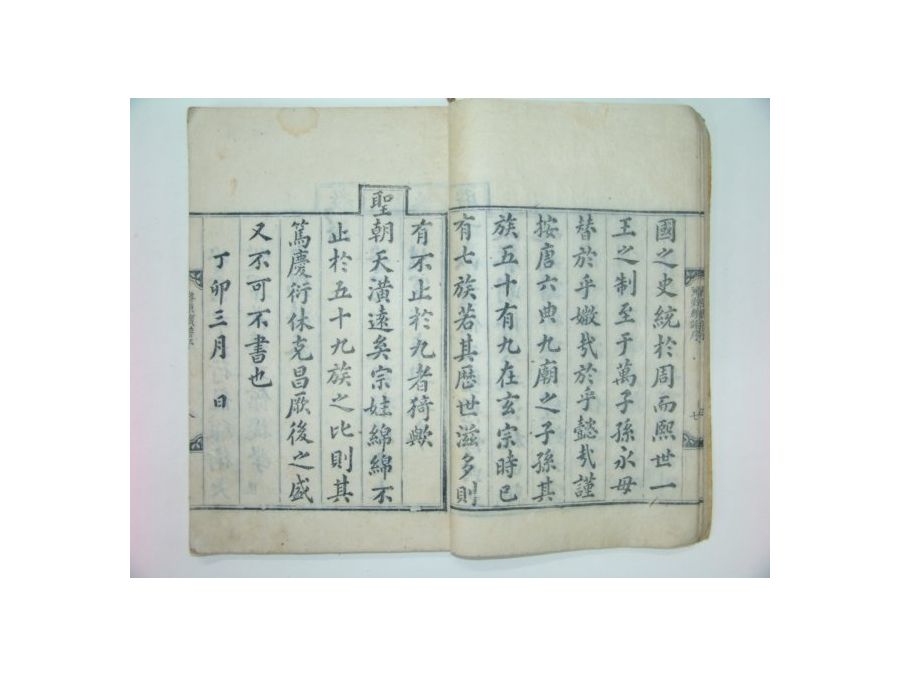 國之史統於周而熙世一
王之制至于萬子孫永毋
替於乎媺哉於乎懿哉謹
按唐六典九廟之子孫其
族五十有九在玄宗時已
有七族若其歷世滋多則
有不止於九者猗歟
聖朝天潢遠矣宗妵綿綿不
止於五十九族之比則其
篤慶衍休克昌厥後之盛
又不可不書也
丁卯三月日